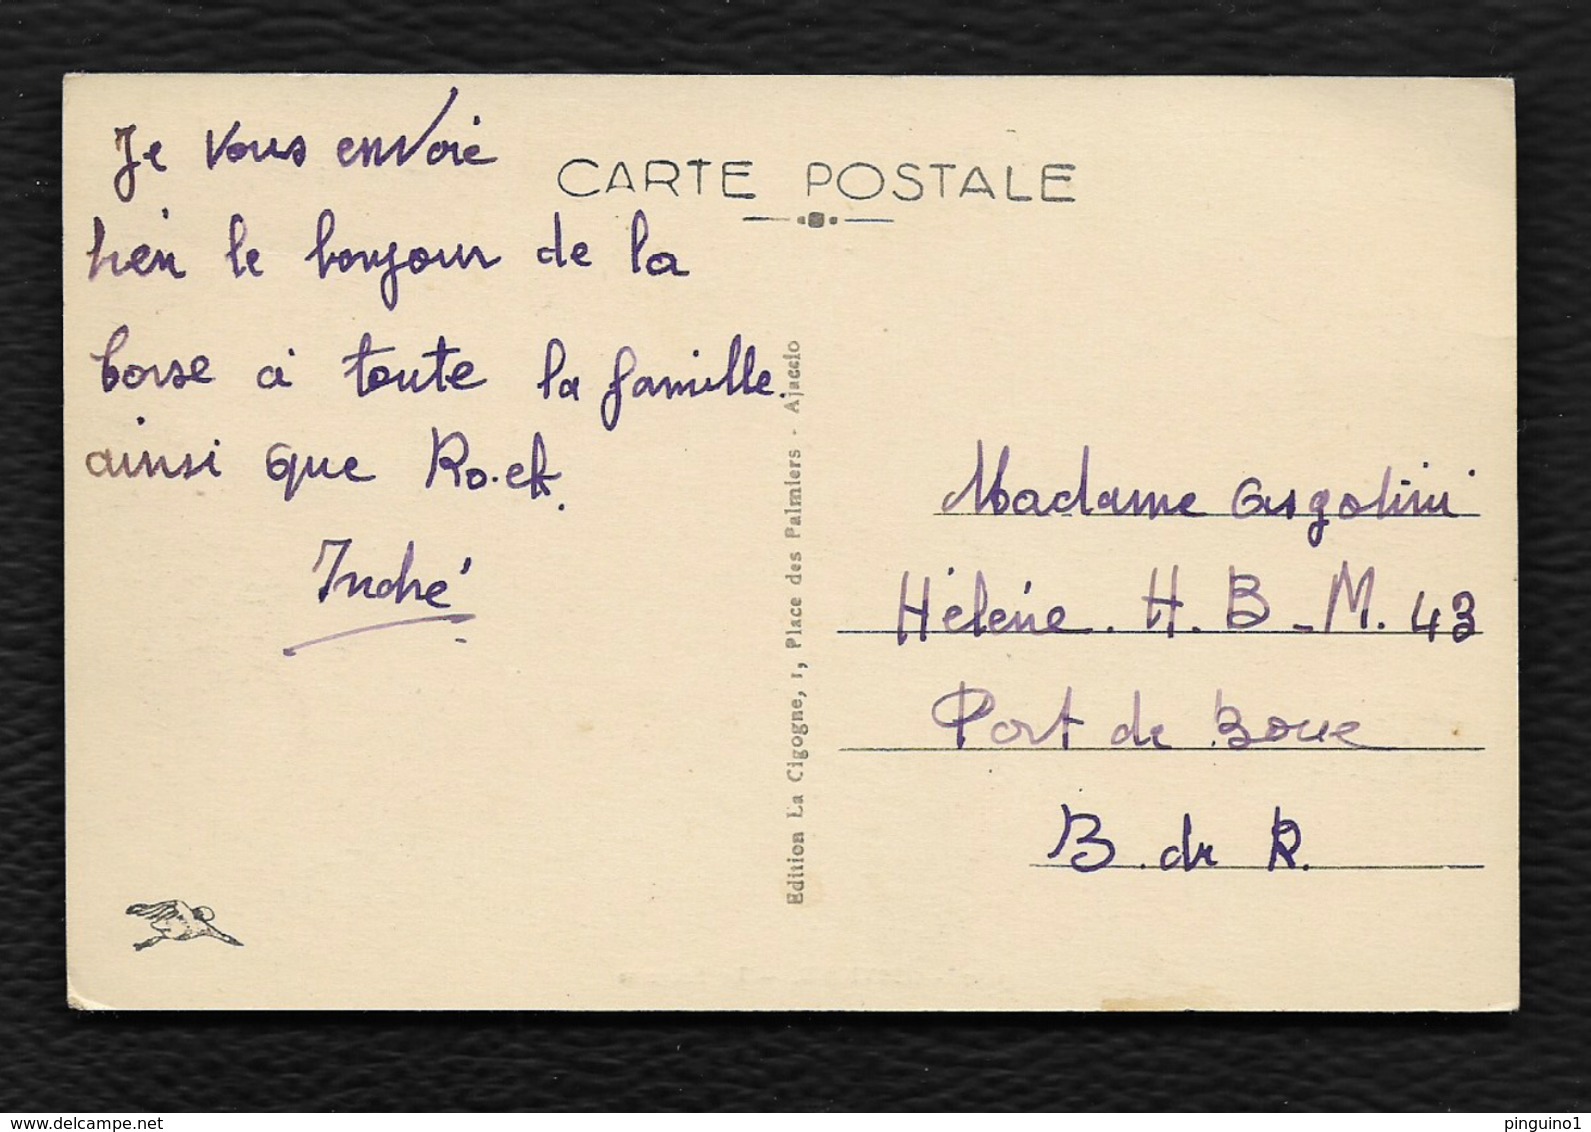 Je vous envoie
CARTE POSTALE
bien le bonjour de la
Corse à toute la famille.
ainsi que
André
Edition La Cigogne, 1, Place des Palmiers - Ajaccio
Madame
Hélène. H. B - M. 43
Port de Bouc
B. de R.
delcampe.net
pinguino1